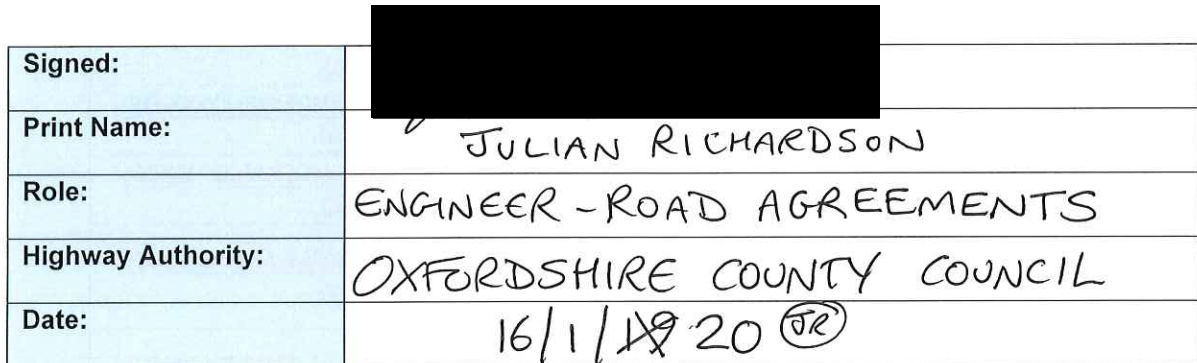 Signed:
Print Name: JULIAN RICHARDSON
Role: ENGINEER - ROAD AGREEMENTS
Highway Authority: OXFORDSHIRE COUNTY COUNCIL
Date: 16/1/19 20 JR